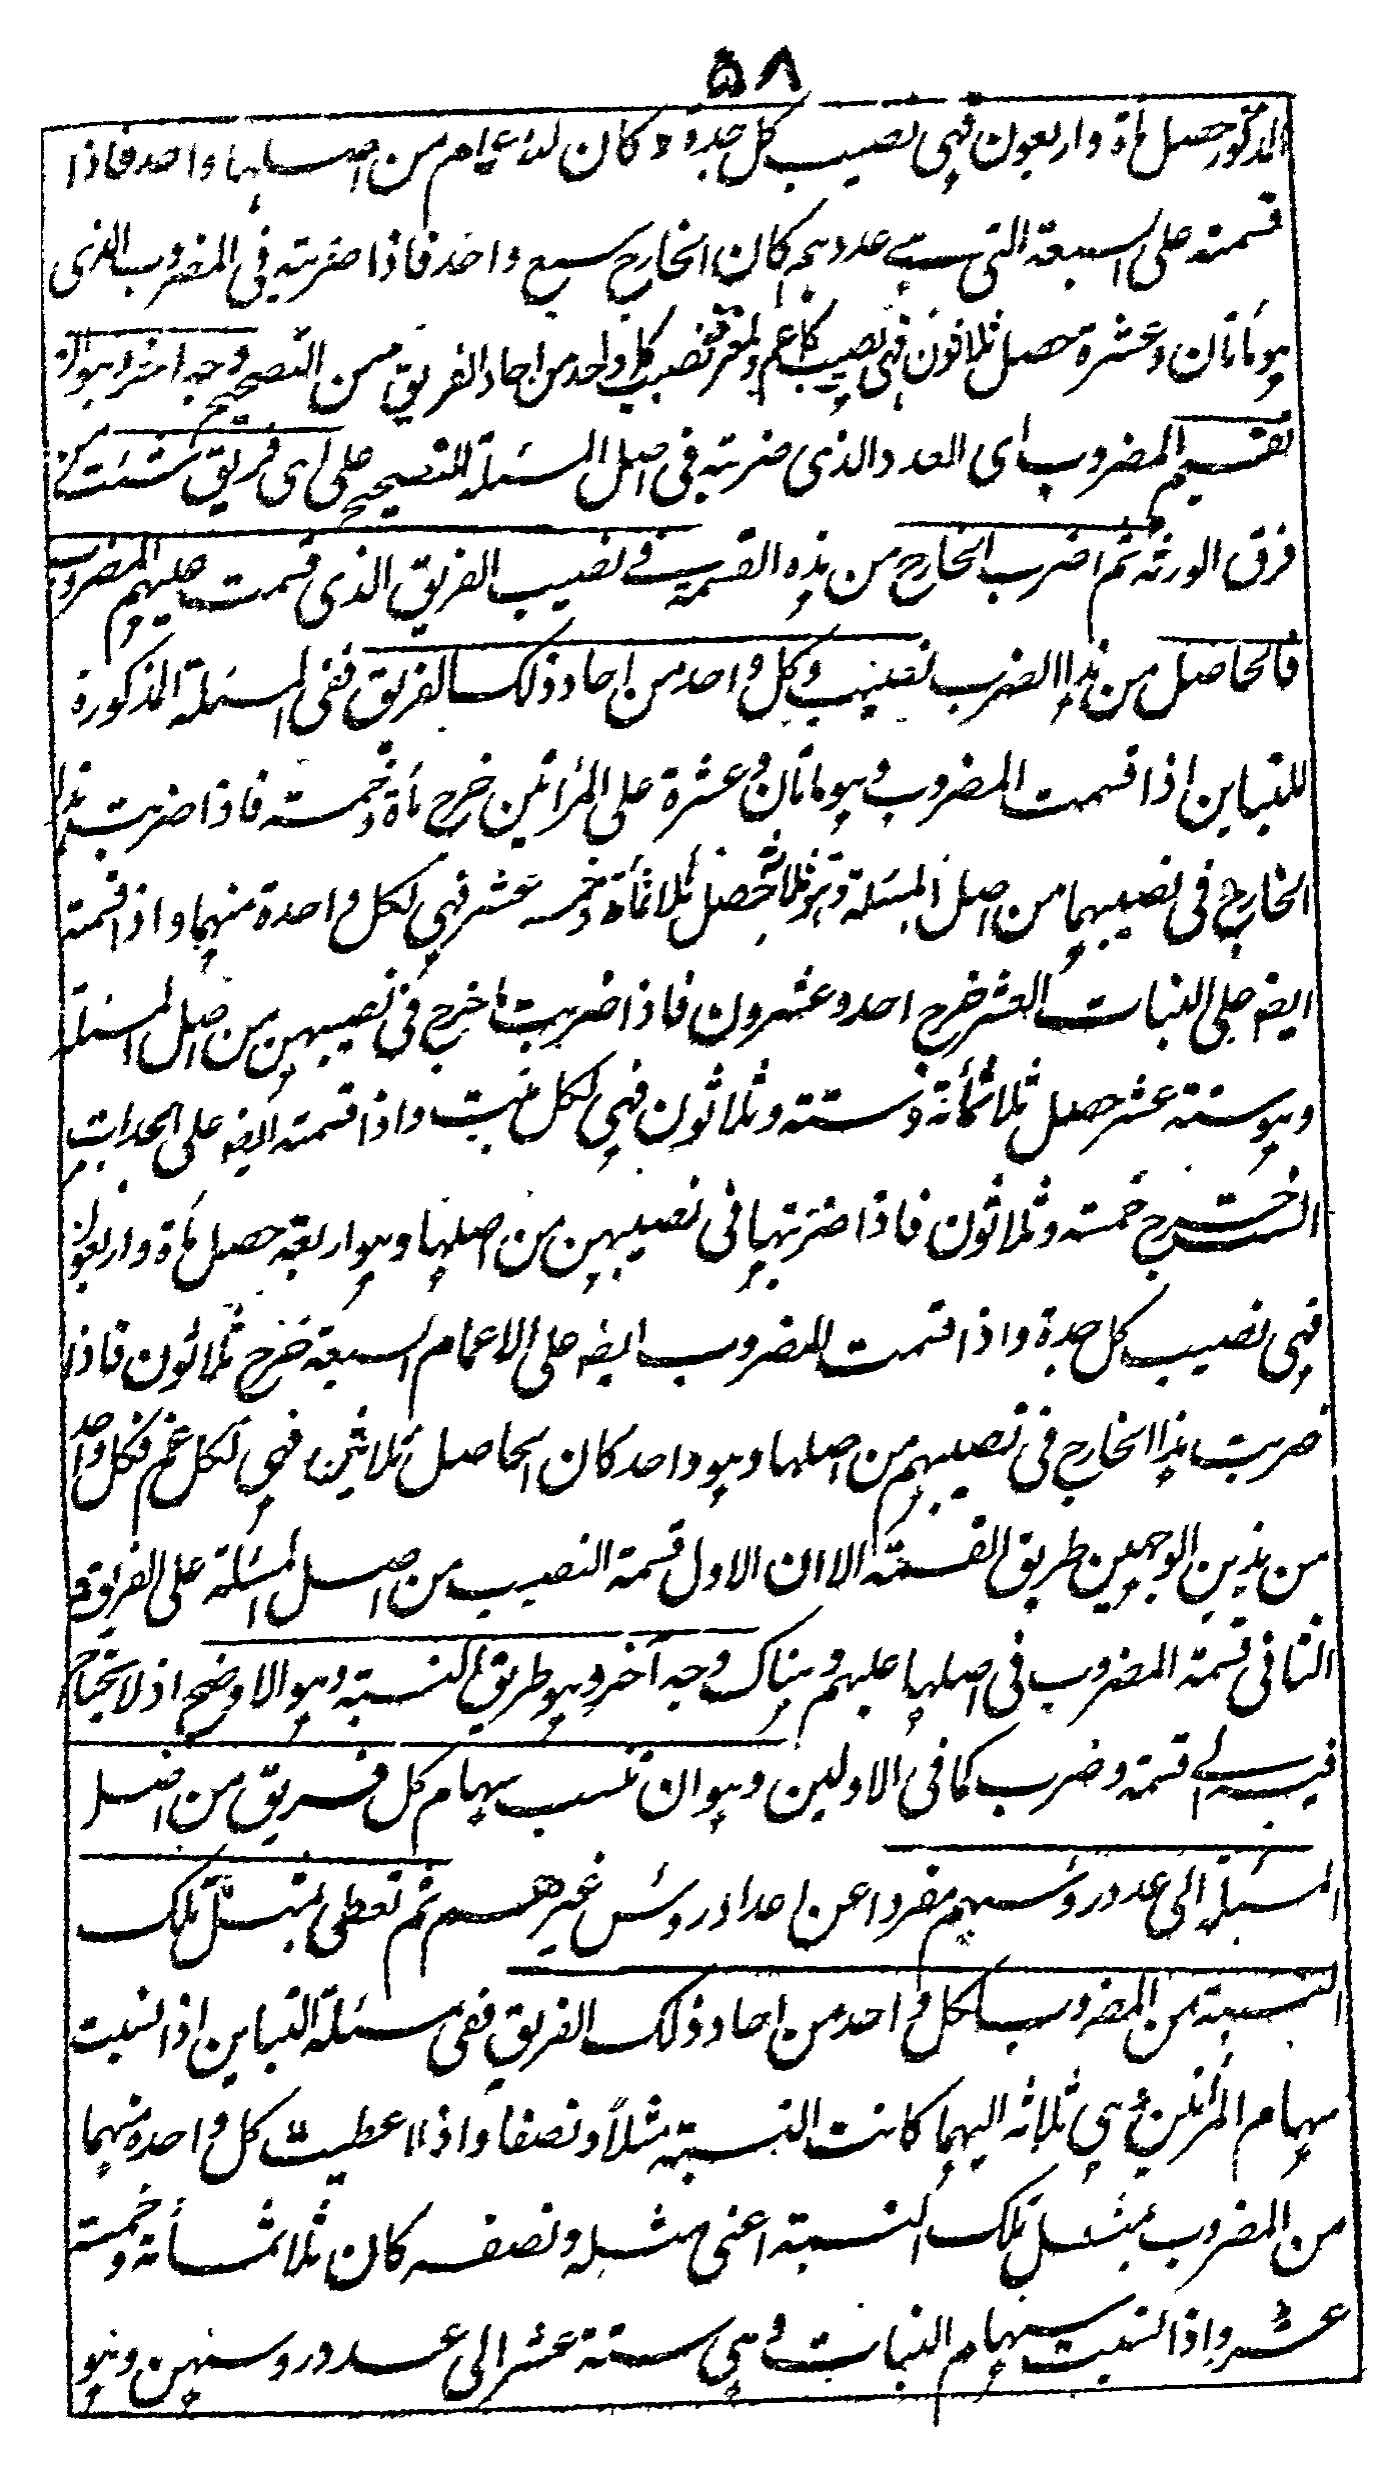 ۵۸
المذكور حصل مأة واربعون فهى نصيب كل جدة و كان للاعمام من اصلها واحد فاذا
قسمته على السبعة التى هى عددهم كان الخارج سبع واحد فاذا ضربته فى المضروب الذى
هو مأتان وعشرة حصل ثلاثون فهى نصيب كل عم ولمعرفة نصيب كل واحد من احاد الفريق من التصحيح وجه اخر وهو ان
تقسم المضروب اى العدد الذى ضربته فى اصل المسئلة للتصحيح على اى فريق شئت من
فرق الورثة ثم اضرب الخارج من هذه القسمة فى نصيب الفريق الذى قسمت عليهم المضروب
فالحاصل من هذا الضرب نصيب كل واحد من احاد ذلك الفريق ففى المسئلة المذكورة
للتباين اذا قسمت المضروب وهو مأتان وعشرة على المرأتين خرج مأة وخمسة فاذا ضربت هذا
الخارج فى نصيبهما من اصل المسئلة وهو ثلاثة حصل ثلاثمأة وخمسه عشر فهى لكل واحدة منهما واذا قسمته
ايضا على البنات العشر خرج احد وعشرون فاذا ضربت ما خرج فى نصيبهن من اصل المسئلة
وهو ستة عشر حصل ثلاثمأة وستة وثلاثون فهى لكل بنت واذا قسمته ايضا على الجدات
الست خرج خمسة وثلاثون فاذا ضربتها فى نصيبهن من اصلها وهو اربعة حصل مأة واربعون
فهى نصيب كل جدة واذا قسمت المضروب ايضا على الاعمام السبعة خرج ثلاثون فاذا
ضربت هذا الخارج فى نصيبهم من اصلها وهو واحد كان الحاصل ثلاثين فهى لكل عم فكل واحد
من هذين الوجهين طريق القسمة الا ان الاول قسمة النصيب من اصل المسئلة على الفريق و
الثانى قسمة المضروب فى اصلها عليهم وهناك وجه آخر وهو طريق النسبة وهو الاوضح اذ لا يحتاج
فيه الى قسمة وضرب كما فى الاولين وهو ان تنسب سهام كل فريق من اصل
المسئلة الى عدد رؤسهم مفردا عن اعداد رؤس غيرهم ثم تعطى بمثل تلك
النسبة من المضروب لكل واحد من احاد ذلك الفريق ففى مسئلة التباين اذا نسبت
سهام المرأتين وهى ثلاثه اليهما كانت النسبة مثلاً ونصفا واذا اعطيت كل واحدة منهما
من المضروب بمثل تلك النسبة اعنى مثله ونصفه كان ثلاثمأة وخمسة
عشر واذا نسبت سهام البنات وهى ستة عشر الى عدد رؤسهن وهو